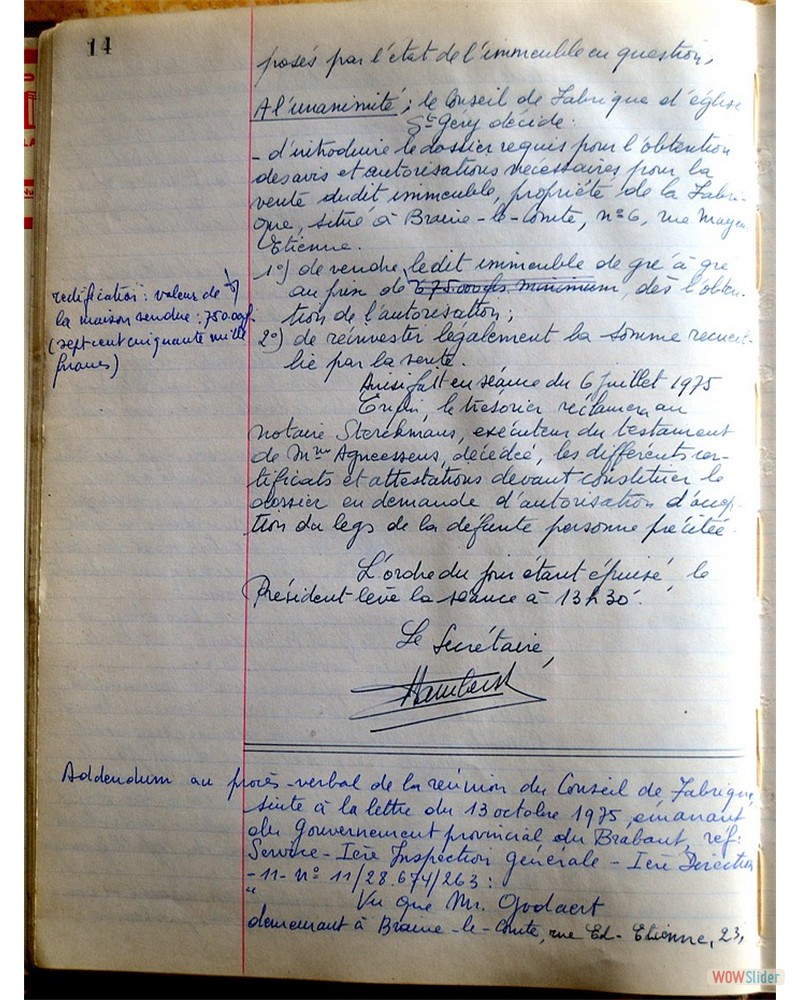 14
posés par l'état de l'immeuble en question,
A l'unanimité ; le Conseil de Fabrique d'église
St Géry décide :
- d'introduire le dossier requis pour l'obtention
des avis et autorisations nécessaires pour la
vente dudit immeuble, propriété de la Fabri-
que, situé à Braine-le-Comte, n° 6, rue Mayeur
Etienne.
1°) de vendre ledit immeuble de gré à gré
au prix de 675.000 frs minimum, dès l'obten-
tion de l'autorisation ;
2°) de réinvestir légalement la somme recueil-
lie par la vente.
rectification : valeur de
la maison vendue : 750.000 f.
(sept cent cinquante mille
francs)
Ainsi fait en séance du 6 juillet 1975
Enfin, le trésorier réclamera au
notaire Sterckmans, exécuteur du testament
de Mme Agneessens, décédée, les différents cer-
tificats et attestations devant constituer le
dossier en demande d'autorisation d'accep-
tion du legs de la défunte personne précitée.
L'ordre du jour étant épuisé, le
Président lève la séance à 13 h 30'.
Le Secrétaire,
Addendum au procès-verbal de la réunion du Conseil de Fabrique,
suite à la lettre du 13 octobre 1975, émanant
du Gouvernement provincial du Brabant, réf :
Service - Ière Inspection générale - Ière Direction
- 11 - N° 11/28.674/263 :
" Vu que Mr. Godaert
demeurant à Braine-le-Comte, rue Ed. Etienne, 23,
WOWSlider